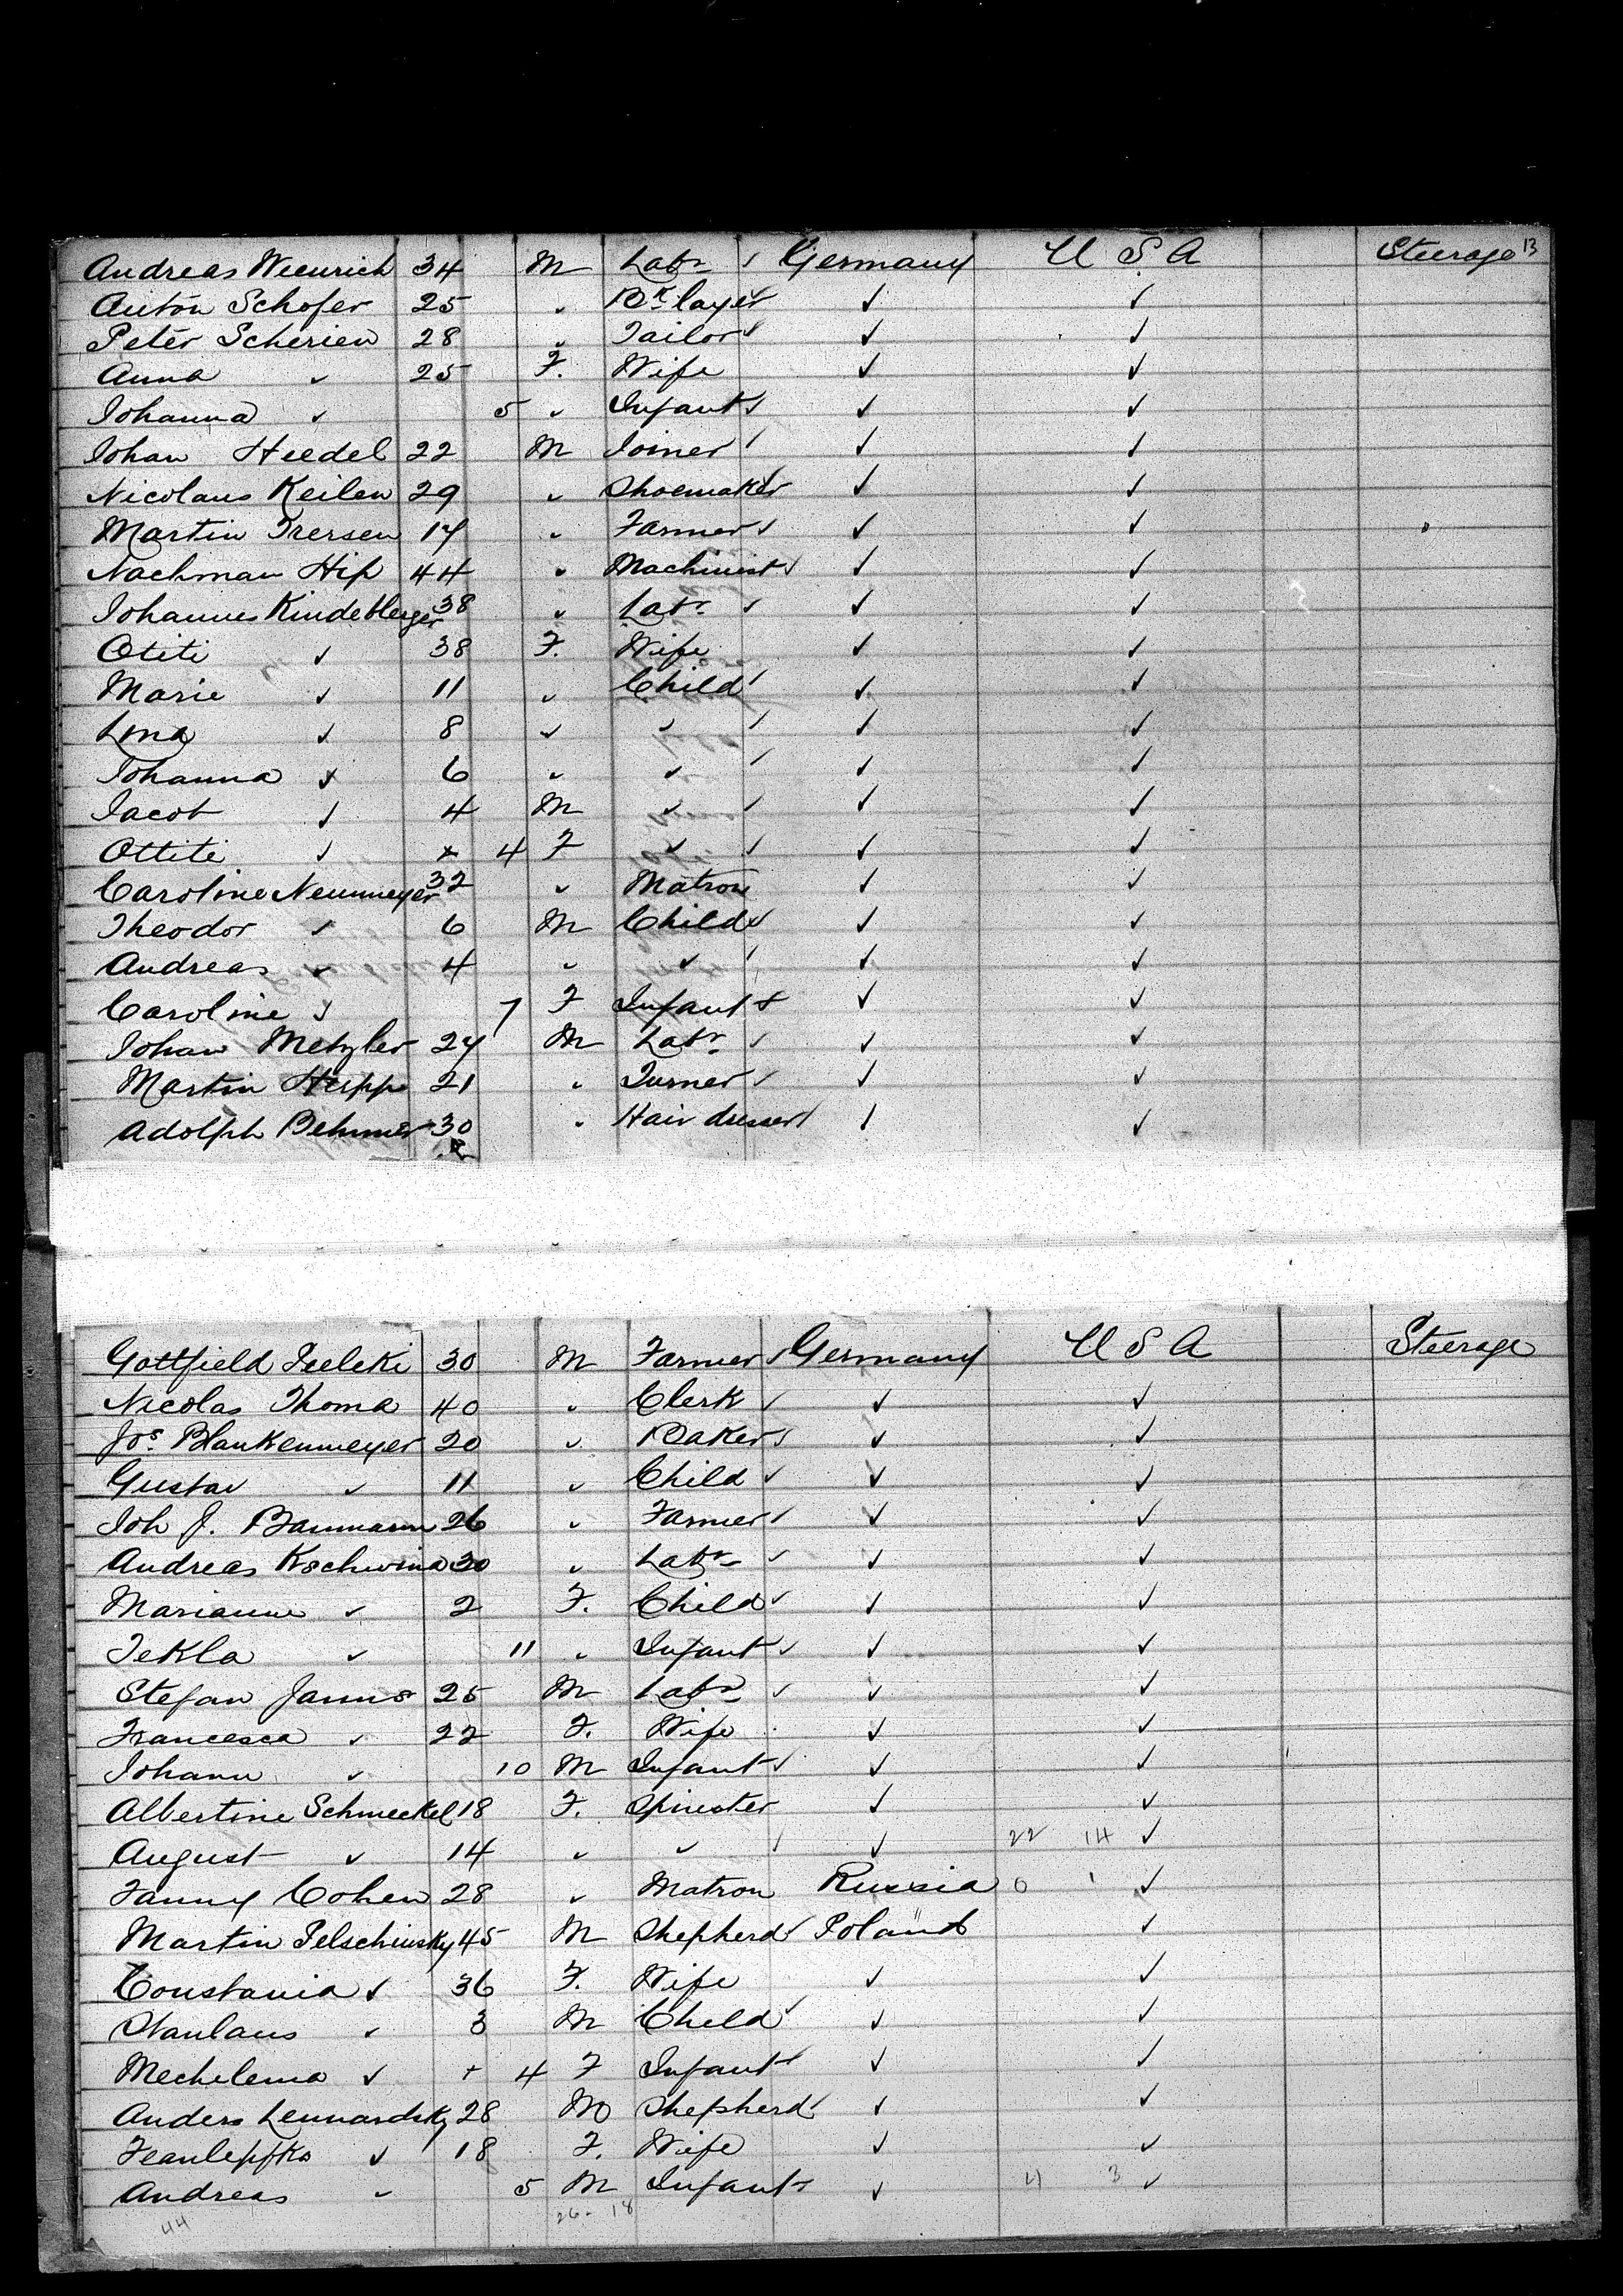 Andreas Weinrich 34 M Labr ✓ Germany U S A Steerage 13
Anton Schofer 25 " Bk layer ✓ ✓ ✓
Peter Scherien 28 " Tailor ✓ ✓ ✓
Anna " 25 F. Wife ✓ ✓
Johanna " 5 " Infant ✓ ✓ ✓
Johan Heedel 22 M Joiner ✓ ✓ ✓
Nicolaus Keilen 29 " Shoemaker ✓ ✓ ✓
Martin Iversen 17 " Farmer ✓ ✓ ✓ "
Nachman Hip 44 " Machinist ✓ ✓ ✓
Johannes Kindelberger 38 " Labr ✓ ✓ ✓
Otiti ✓ 38 F. Wife ✓ ✓
Marie ✓ 11 " Child ✓ ✓ ✓
Lina ✓ 8 " " ✓ ✓ ✓
Johanna ✓ 6 " " ✓ ✓ ✓
Jacob ✓ 4 M " ✓ ✓ ✓
Ottiti ✓ + 4 F ✓ ✓ ✓ ✓
Caroline Neumeyer 32 " Matron ✓ ✓
Theodor ✓ 6 M Child ✓ ✓ ✓
Andreas ✓ 4 " " ✓ ✓ ✓
Caroline ✓ 7 F Infant ✓ ✓ ✓
Johan Metzler 24 M Labr ✓ ✓ ✓
Martin Heppe 21 " Turner ✓ ✓ ✓
Adolph Behmer 30 " Hair dresser ✓ ✓ ✓
Gottfield 30 M Farmer ✓ Germany U S A Steerage
Nicolas Thoma 40 " Clerk ✓ ✓ ✓
Jos. Blankenmeyer 20 " Baker ✓ ✓ ✓
Gustav " 11 " Child ✓ ✓ ✓
Joh J. Baumann 26 " Farmer ✓ ✓ ✓
Andreas Kschwina 30 " Labr ✓ ✓ ✓
Marianne " 2 F. Child ✓ ✓ ✓
Tekla " 11 " Infant ✓ ✓ ✓
Stefan Janus 25 M Labr ✓ ✓ ✓
Francesca " 22 F. Wife ✓ ✓
Johann " 10 M Infant ✓ ✓ ✓
Albertine Schmeckel 18 F. Spinster ✓ ✓
August " 14 " " ✓ ✓ 22 14 ✓
Fanny Cohen 28 " Matron Russia 0 1 ✓
Martin Pelschinsky 45 M Shepherd ✓ Poland ✓
Constania ✓ 36 F. Wife ✓ ✓
Stanlaus ✓ 3 M Child ✓ ✓ ✓
Mechelema ✓ + 4 F Infant ✓ ✓
Anders Lennardsky 28 M Shepherd ✓ ✓ ✓
✓ 18 F. Wife ✓ ✓
Andreas " 5 M Infant ✓ 4 3 ✓
44 26 - 18